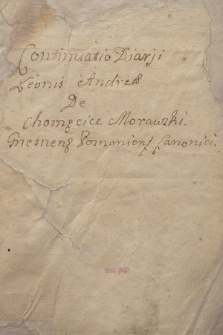 Continuatio Diarji
Leonis Andreæ
De
Chomęcice Morawski.
Gnesnens Posnaniens Canonici.